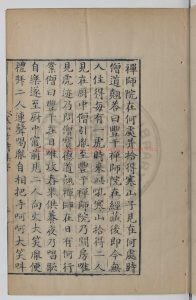 禪師院在何處并拾得寒山子見在何處時
僧道翹答曰豐干禪師院在經藏後即今無
人住得每有一虎時來此吼寒山拾得二人
見在廚中僧引胤至豐干禪師院乃開房唯
見虎跡乃問僧寶德道翹禪師在日有何行
業僧曰豐干在日唯攻舂米供養夜乃唱歌
自樂遂至廚中竈前見二人向火大笑胤便
禮拜二人連聲喝胤自相把手呵呵大笑叫